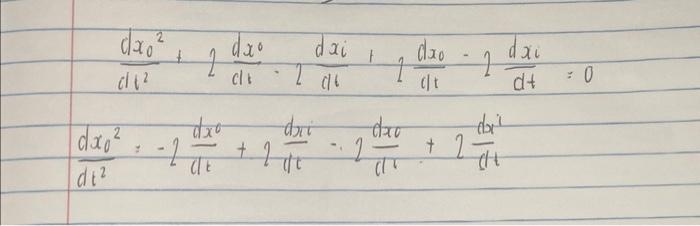 dx₀²/dt² + 2 dx₀/dt - 2 dxi/dt + 2 dx₀/dt - 2 dxi/dt = 0
dx₀²/dt² = -2 dx₀/dt + 2 dxi/dt - 2 dx₀/dt + 2 dxi/dt